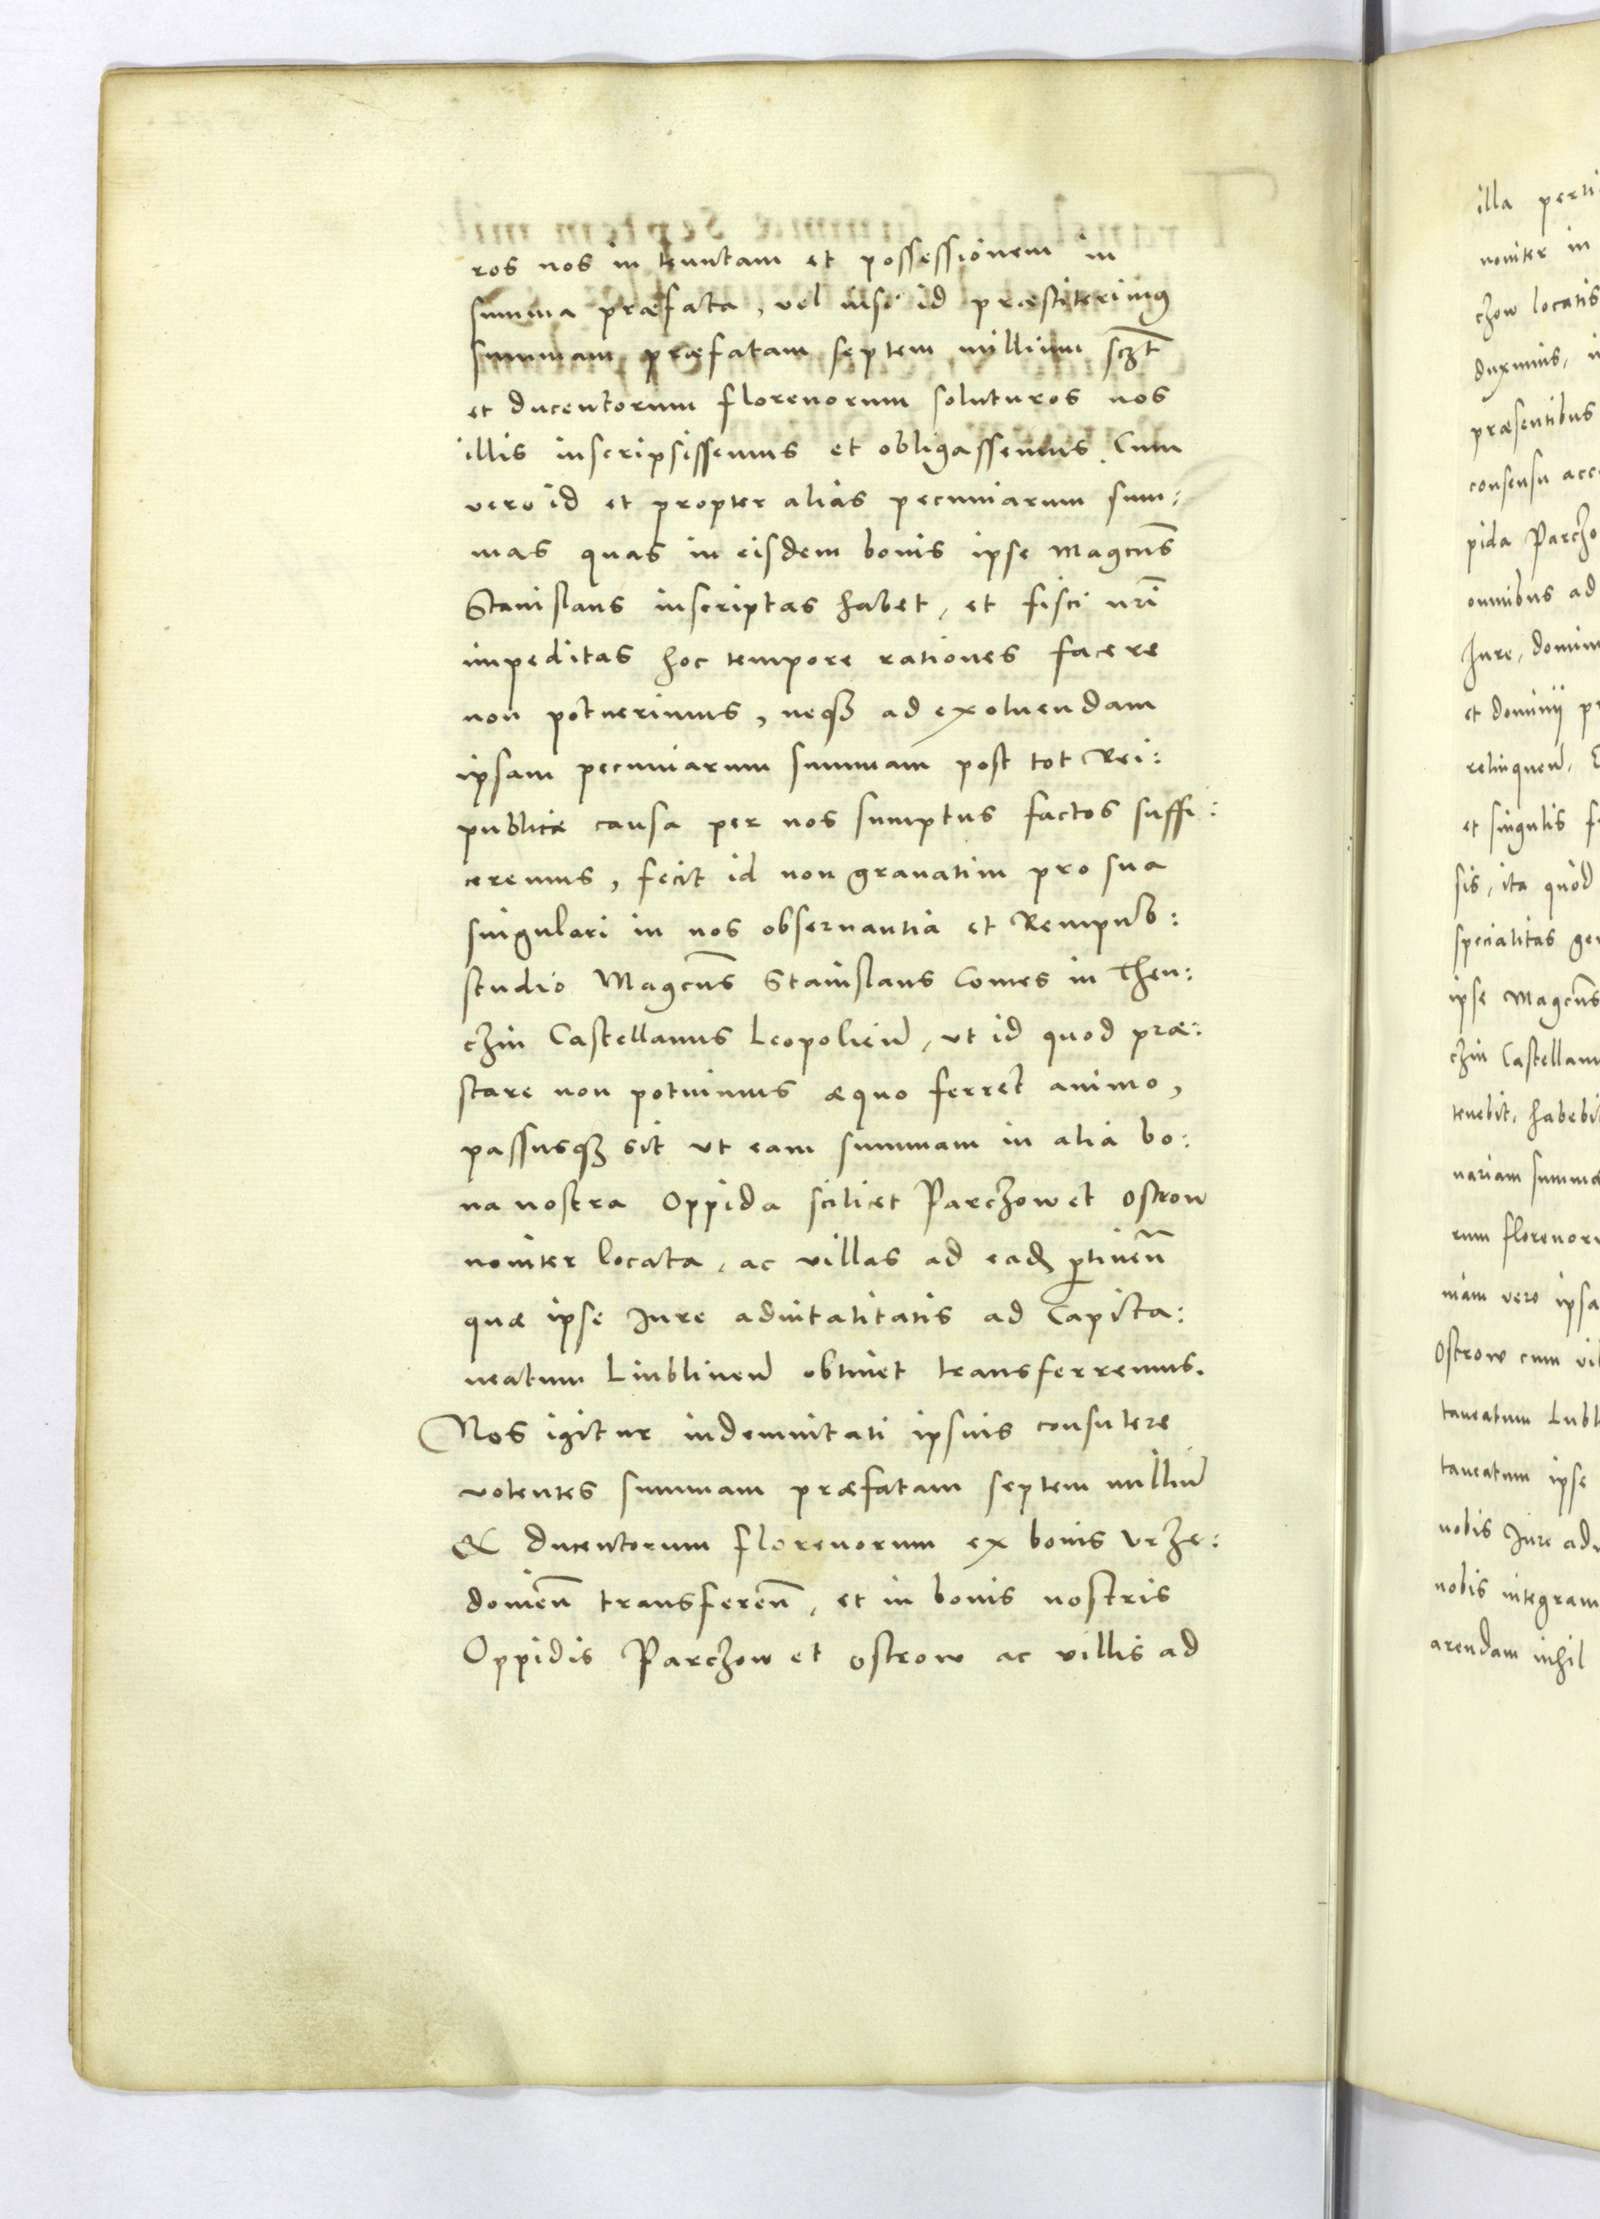 ros nos in tenutam et possessionem in
summa præfata, vel nisi id præstiterimꝰ
summam præfatam septem millium sczt
et ducentorum florenorum soluturos nos
illis inscripsissemus et obligassemus. Cum
vero id et propter alias pecuniarum sum:
mas quas in eisdem bonis ipse Magcus
Stanislaus inscriptas habet, et fisci nri
impeditas hoc tempore rationes facere
non potuerimus, neqȝ ad exoluendam
ipsam pecuniarum summam post tot Rei:
publicæ causa per nos sumptus factos suffi:
ceremus, fecit id non grauatim pro sua
singulari in nos obseruantia et Rempub:
studio Magcus Stanislaus Comes in Then:
czin Castellanus Leopolien, vt id quod præ:
stare non potuimus æquo ferret animo,
passusqȝ sit vt eam summam in alia bo:
na nostra Oppida scilicet Parczow et Ostrow
nouiter locata, ac villas ad eadȝ ptinen
quæ ipse Jure aduitalitatis ad Capita:
neatum Liublinen obtinet transferremus.
Nos igitur indemnitati ipsius consulere
volentes summam præfatam septem milliu
& ducentorum florenorum ex bonis Vrze:
dowien transferen, et in bonis nostris
Oppidis Parczow et Ostrow ac villis ad
illa perti
nouiter in
czow locatis
duximus, i
præsentibus
consensu acc
pida Parczo
omnibus ad
Jure, domin
et dominij pr
relinquen,
et singulis f
sis, ita quod
specialitas gen
ipse Magcus
czin Castellanu
tenebit, habebit
nariam summa
rum florenoru
niam vero ipsa
Ostrow cum vil
taneatum Lubl
taneatum ipse
nobis Jure adu
nobis integram
arendam nihil